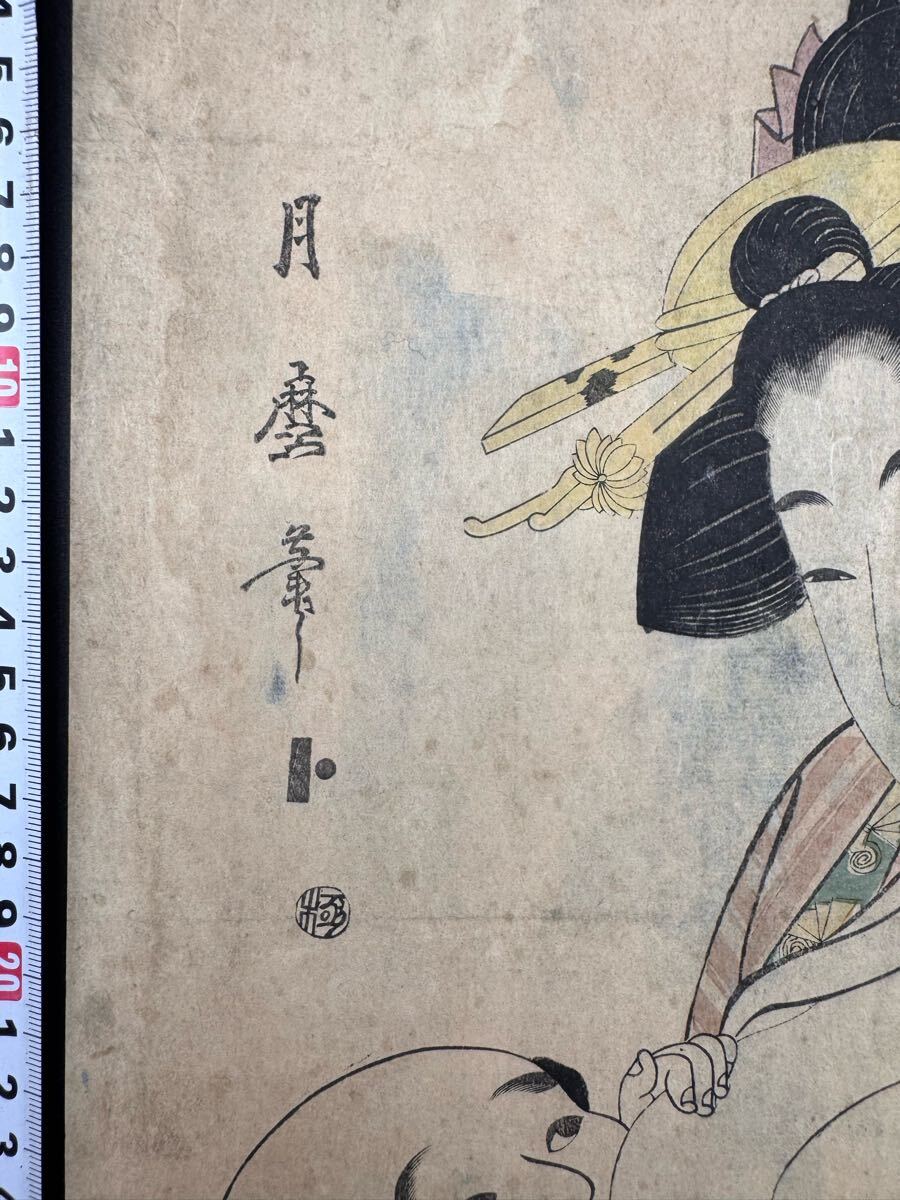 月麿筆
極
4
5
6
7
8
9
10
1
2
3
4
5
6
7
8
9
20
1
2
3